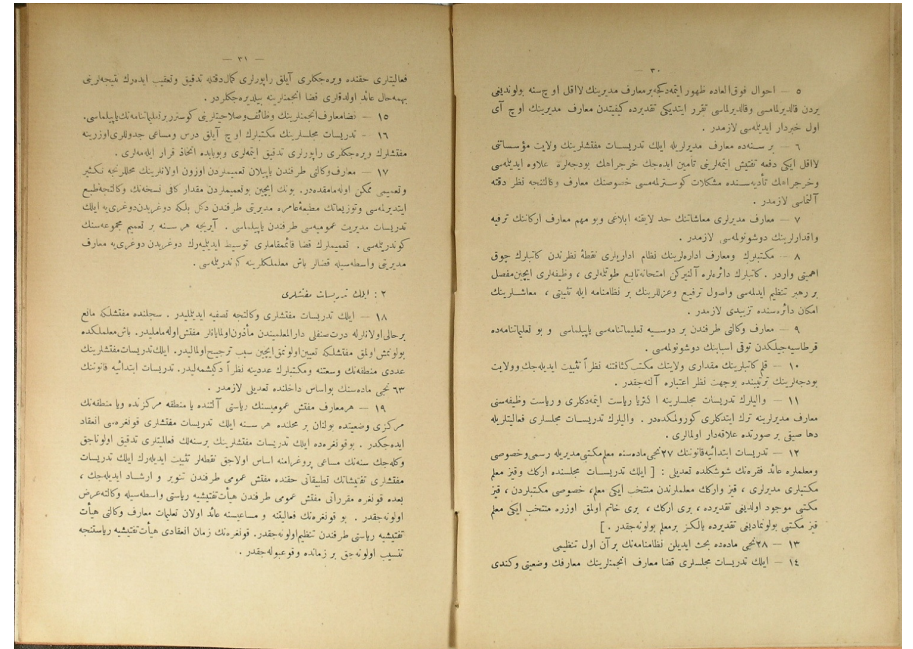 — ٣٠ —
٥ — احوال فوق‌العاده ظهور ایتمه‌دکجه بر معارف مدیرینك لااقل اوچ سنه بولوندیغی
یردن قالدیرلمامسی وقالدیرلماسی تقرر ایتدیکی تقدیرده کیفیتدن معارف مدیرینك اوچ آی
اول خبردار ایدیلمسی لازمدر .
٦ — بر سنه‌ده معارف مدیرلریله ایلك تدریسات مفتشلرینك ولایت مؤسساتنی
لااقل ایکی دفعه تفتیش ایتمه‌لرینی تأمین ایده‌جك خرجراهك بودجه‌لره علاوه ایدیلمسی
وخرجراهك تأدیه‌سنده مشکلات کوسترلمه‌مسی خصوصنك معارف وکالتنجه نظر دقته
آلنماسی لازمدر .
٧ — معارف مدیرلری معاشاتنك حد لایقنه ابلاغی وبو مهم معارف ارکاننك ترفیه
واقدارلرینك دوشونولمه‌سی لازمدر .
٨ — مکتبلرك ومعارف اداره‌لرینك نظام اداریلری نقطهٔ نظرندن کاتبلرك چوق
اهمیتی واردر . کاتبلرك دائره‌لره آلنیرکن امتحانه تابع طوتلمه‌لری ، وظیفه‌لری ایچین مفصل
بر رهبر تنظیم ایدلمسی واصول ترفیع وعزللرینك بر نظامنامه ایله تثبیتی ، معاشلرینك
امکان دائره‌سنده تزییدی لازمدر .
٩ — معارف وکالتی طرفندن بر دوسیه تعلیماتنامه‌سی یاپیلماسی و بو تعلیماتنامه‌ده
قرطاسیه‌جیلکدن توقی اسبابنك دوشونولمه‌سی .
١٠ — قلم کاتبلرینك مقداری ولایتك مکتب کثافتنه نظراً تثبیت ایدیله‌جك وولایت
بودجه‌لرینك ترتیبنده بوجهت نظر اعتباره آلنه‌جقدر .
١١ — والیلرك تدریسات مجلسلرینه اکثریا ریاست ایتمه‌دکلری و ریاست وظیفه‌سنی
معارف مدیرلرینه ترك ایتدکلری کورولمکده‌در . والیلرك تدریسات مجلسلری فعالیتلریله
دها صیقی بر صورتده علاقه‌دار اولمالری .
١٢ — تدریسات ابتدائیه قانوننك ٢٧نجی ماده‌سنه معلم مکتبی مدیریله رسمی وخصوصی
ومعلملره عائد فقره‌نك شوشکلده تعدیلی : [ ایلك تدریسات مجلسنده ارکك وقیز معلم
مکتبلری مدیرلری ، قیز وارکك معلملرندن منتخب ایکی معلم ، خصوصی مکتبلردن ، قیز
مکتبی موجود اولدیغی تقدیرده ، بری ارکك ، بری خانم اولمق اوزره منتخب ایکی معلم
قیز مکتبی بولونمادیغی تقدیرده یالکز برمعلم بولونه‌جقدر . ]
١٣ — ٢٨نجی ماده‌ده بحث ایدیلن نظامنامه‌نك بر آن اول تنظیمی
١٤ — ایلك تدریسات مجلسلری قضا معارف انجمنلرینك معارفك وضعیتی وکندی
— ٣١ —
فعالیتلری حقنده ویره‌جکلری آیلق راپورلری کمال دقتله تدقیق وتعقیب ایده‌رك نتیجه‌لرینی
بهمه‌حال عائد اولدقلری قضا انجمنلرینه بیلدیره‌جکلردر .
١٥ — قضا معارف انجمنلرینك وظائف وصلاحیتلرینی کوسترر بر تعلیماتنامه‌نك یاپیلماسی .
١٦ — تدریسات مجلسلرینك مکتبلرك اوچ آیلق درس ومساعی جدوللری اوزرینه
مفتشلرك ویره‌جکلری راپورلری تدقیق ایتمه‌لری وبوبابده اتخاذ قرار ایله‌مه‌لری .
١٧ — معارف وکالتی طرفندن یاپیلان تعمیملردن اوزون اولانلرینك محللرنجه تکثیر
وتعمیمی ممکن اوله‌مامقده‌در . بونك ایچین بوتعمیملردن مقدار کافی نسخه‌نك وکالتجه طبع
ایتدیرلمه‌سی وتوزیعاتك مطبعهٔ عامره مدیریتی طرفندن دکل بلکه دوغریدن دوغری‌یه ایلك
تدریسات مدیریت عمومیه‌سی طرفندن یاپیلماسی . آیریجه هر سنه بر تعمیم مجموعه‌سنك
کوندریلمه‌سی . تعمیملرك قضا قائممقاملری توسیط ایدیلیه‌رك دوغریدن دوغری‌یه معارف
مدیریتی واسطه‌سیله قضالر باش معلملکلرینه کوندریلمه‌سی .
٢ : ایلك تدریسات مفتشلری
١٨ — ایلك تدریسات مفتشلری وکالتجه تصفیه ایدیلمیلیدر . سجلنده مفتشلکه مانع
برحالی اولانلرله درت صنفلی دارالمعلمیندن مأذون اولمایانلر مفتش اوله‌مامه‌لیدر . باش معلملکده
بولونمش اولمق مفتشلکه تعیین اولونمق ایچین سبب ترجیح اولمالیدر . ایلك تدریسات مفتشلرینك
عددی منطقه‌نك وسعتنه ومکتبلرك عددینه نظراً دکیشمه‌لیدر . تدریسات ابتدائیه قانوننك
٦٣نجی ماده‌سنك بواساس داخلنده تعدیلی لازمدر .
١٩ — هرمعارف مفتش عمومیسنك ریاستی آلتنده یا منطقه مرکزنده ویا منطقه‌نك
مرکزی وضعیتنده بولنان بر محلنده هر سنه ایلك تدریسات مفتشلری قونغره‌سی انعقاد
ایده‌جکدر . بوقونغره‌ده ایلك تدریسات مفتشلرینك برسنه‌لك فعالیتلری تدقیق اولوناجق
وکله‌جك سنه‌نك مساعی پروغرامنه اساس اولاجق نقطه‌لر تثبیت ایدیله‌رك ایلك تدریسات
مفتشلری تفتیشاتك تطبیقاتی حقنده مفتش عمومی طرفندن تنویر و ارشاد ایدیله‌جك ،
بعده قونغره مقرراتی مفتش عمومی طرفندن هیأت تفتیشیه ریاستی واسطه‌سیله وکالته عرض
اولونه‌جقدر . بو قونغره‌نك فعالیتنه و مساعیسنه عائد اولان تعلیمات معارف وکالتی هیأت
تفتیشیه ریاستی طرفندن تنظیم اولونه‌جقدر . قونغره‌نك زمان انعقادی هیأت تفتیشیه ریاستنجه
تنسیب اولونه‌جق بر زمانده وقوعبوله‌جقدر .